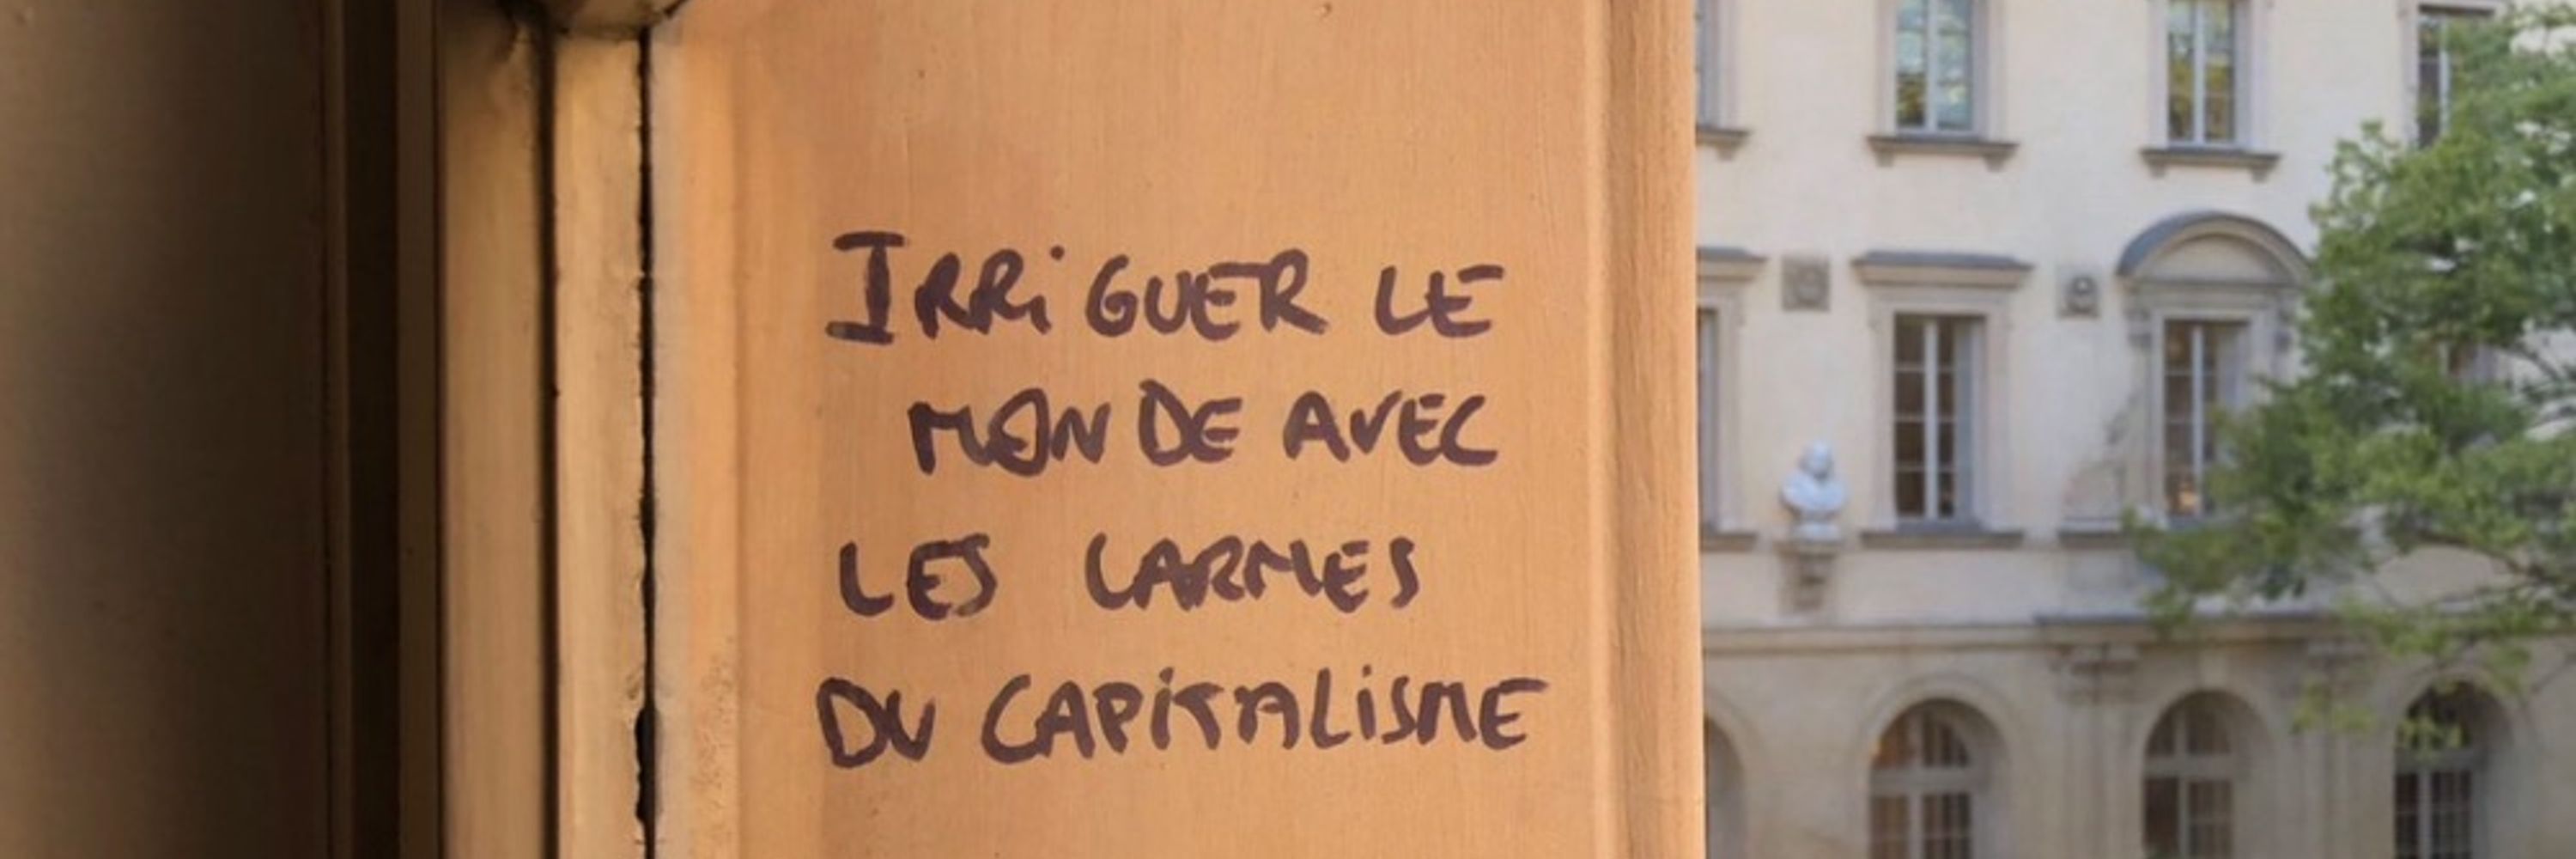 IRRiGUER LE
MONDE AVEC
LES LARMES
DU CAPiTALiSME